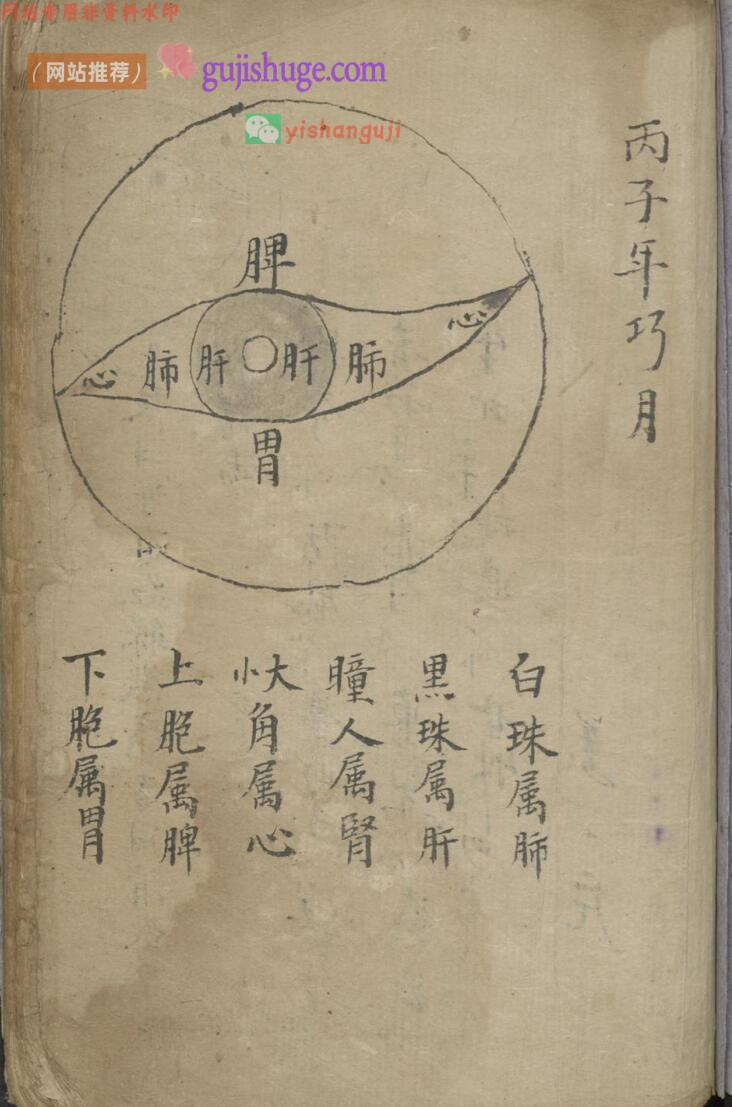 网站水眉非资料水印
（网站推荐）
gujishuge.com
yishanguji
丙子年巧月
脾
心 肺 肝 肝 肺 心
胃
白珠属肺
黑珠属肝
瞳人属腎
大小角属心
上胞属脾
下胞属胃